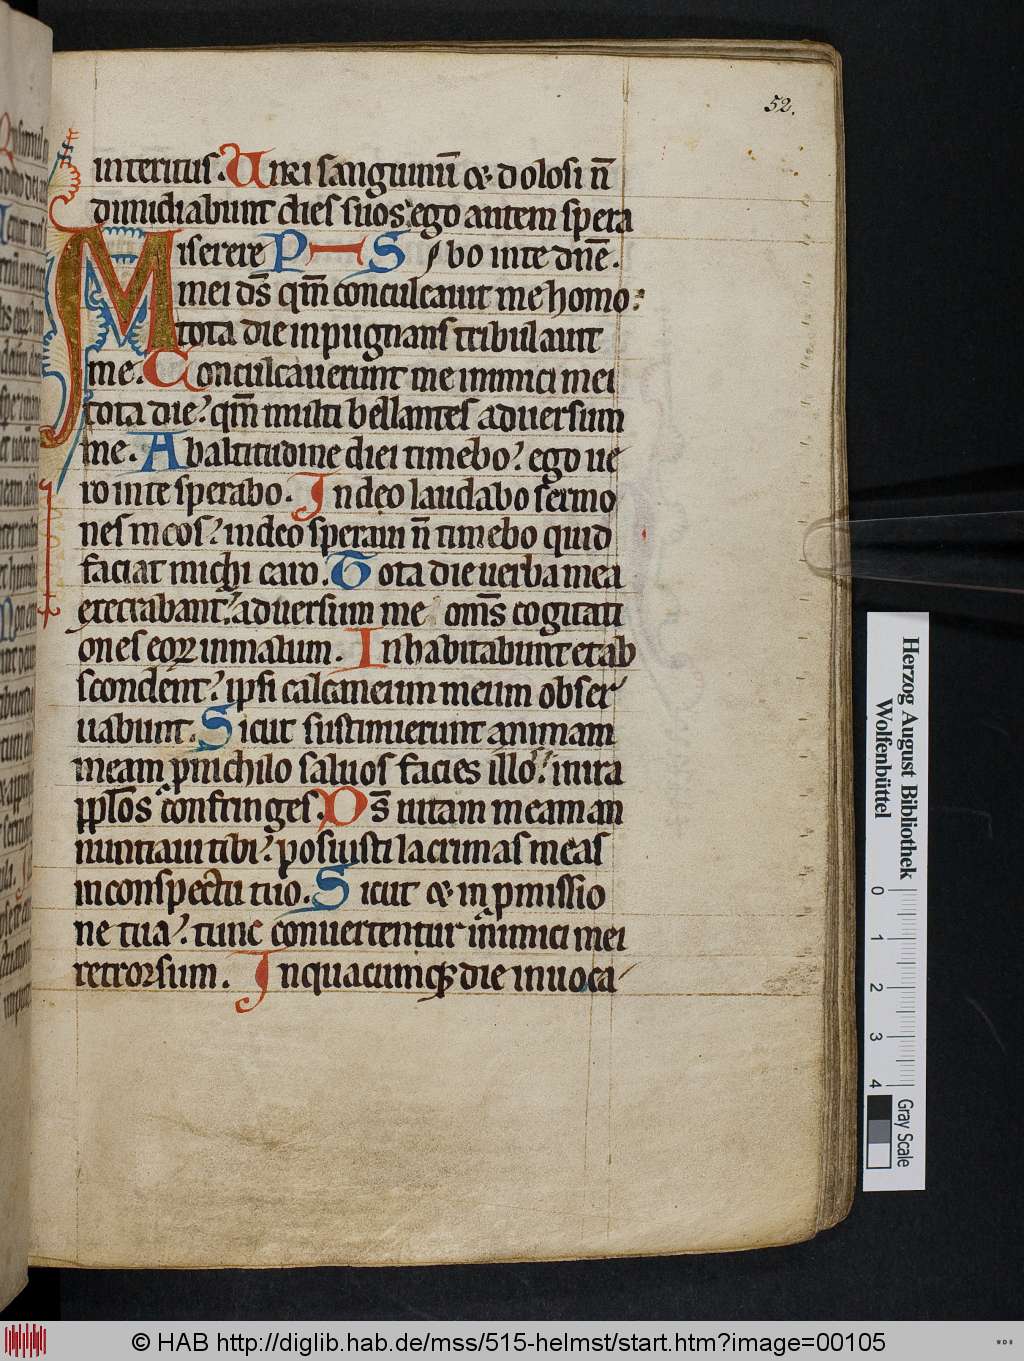 52.
interitus. Uiri sanguinū & dolosi n̄
dimidiabunt dies suos: ego autem spera
iserere PS bo in te dn̄e.
M mei ds̄ qm̄ conculcauit me homo:
tota die inpugnans tribulauit
me. Conculcauerunt me inimici mei
tota die: qm̄ multi bellantes aduersum
me. Ab altitudine diei timebo: ego ue
ro in te sperabo. In deo laudabo sermo
nes meos: in deo speraui n̄ timebo quid
faciat michi caro. Tota die uerba mea
execrabant: aduersum me om̄s cogitati
ones eoꝝ in malum. Inhabitabunt et ab
scondent: ipsi calcaneum meum obser
uabunt. Sicut sustinuerunt animam
meam ꝓ nichilo saluos facies illos: in ira
ppl̄os confringes. Ds̄ uitam meam an
nuntiaui tibi: posuisti lacrimas meas
in conspectu tuo. Sicut & in ꝓmissio
ne tua: tunc conuertentur inimici mei
retrorsum. In quacumqꝫ die inuoca
Herzog August Bibliothek
Wolfenbüttel
0 1 2 3 4
Gray Scale
© HAB http://diglib.hab.de/mss/515-helmst/start.htm?image=00105